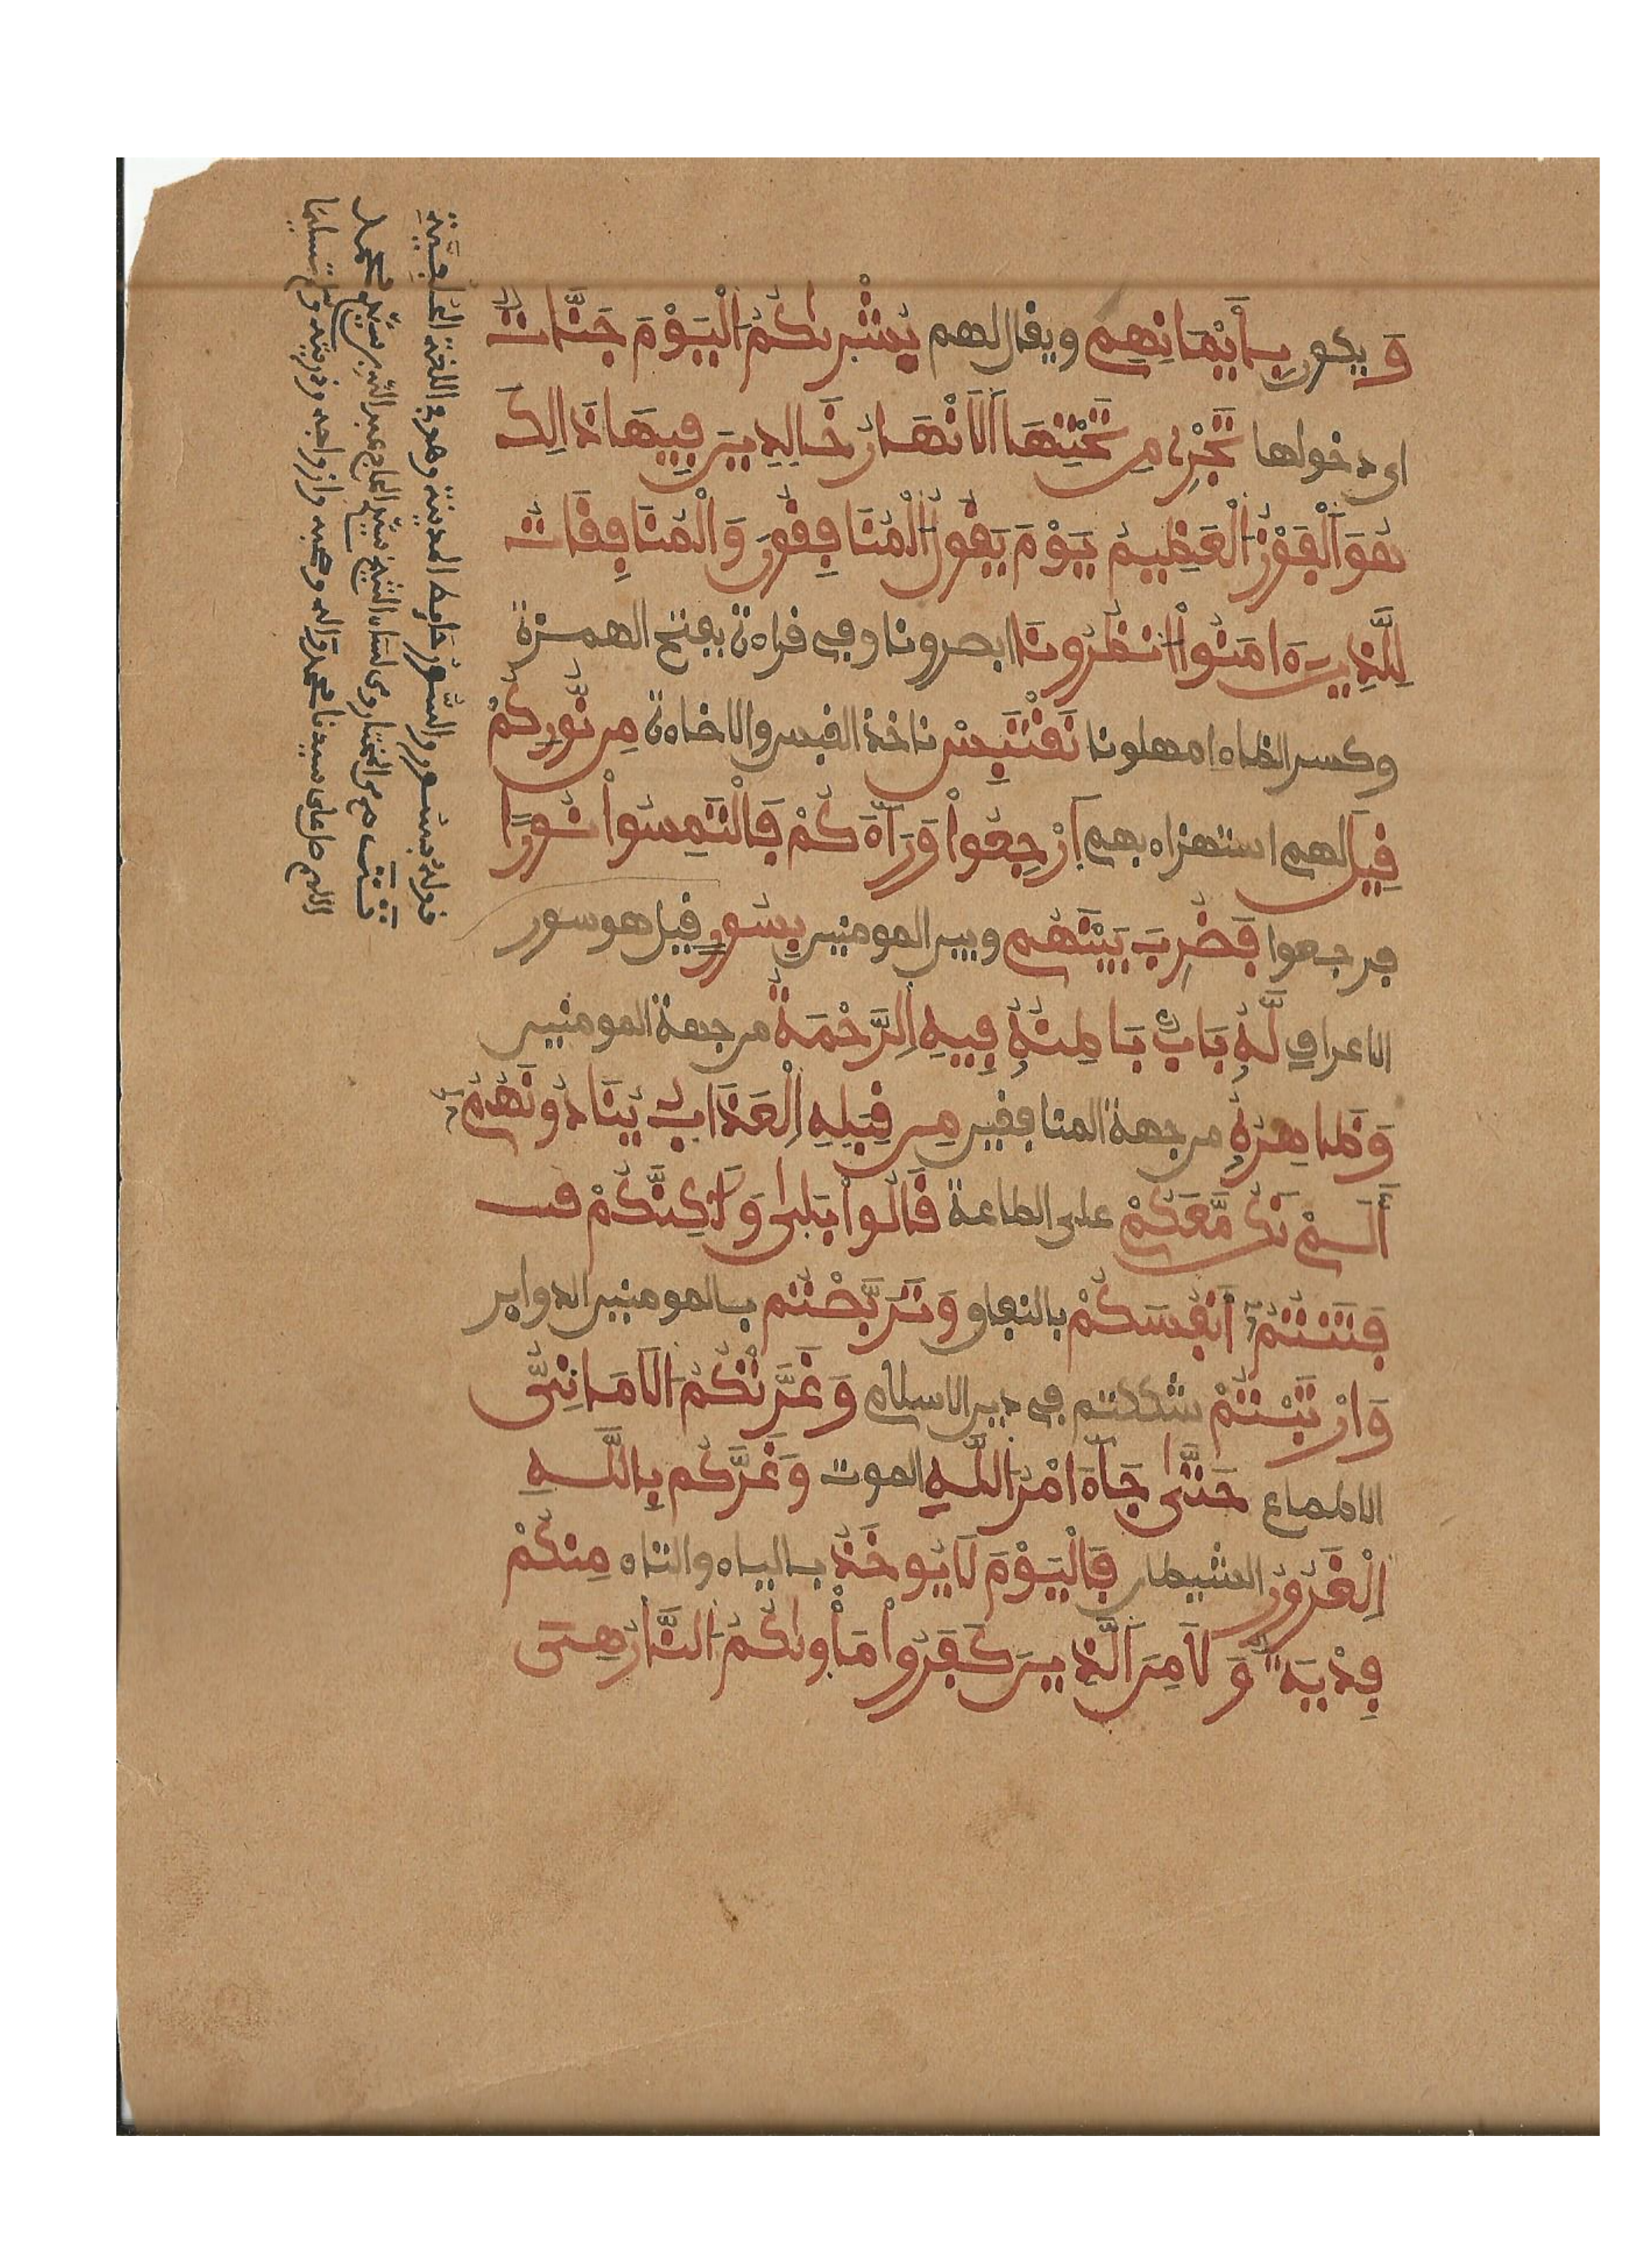 وَيكون بِأَيْمَانِهِم ويقال لهم بُشْرىٰكُمُ الْيَوْمَ جَنَّاتٌ
اى دخولها تَجْرِى مِن تَحْتِهَا الَانْهَارُ خَالِدِينَ فِيهَا ذَالِكَ
هُوَ الْفَوْزُ الْعَظِيمُ يَوْمَ يَقُولُ الْمُنَافِقُونَ وَالْمُنَافِقَاتُ
لِلَّذِينَ ءَامَنُواْ انظُرُونَا ابصرونا وفى قراءة بفتح الهمزة
وكسر الظاء امهلونا نَقْتَبِسْ ناخذ القبس والاضاءة مِن نُّورِكُمْ
قِيلَ لهم استهزاء بهم اَرْجِعُواْ وَرَآءَكُمْ فَالْتَمِسُواْ نُورًا
فرجعوا فَضُرِبَ بَيْنَهُم وبين المومنين بِسُورٍ قيل هو سور
الاعراف لَّهُ بَابٌ بَاطِنُهُ فِيهِ اِلرَّحْمَةُ من جهة المومنين
وَظَاهِرُهُ من جهة المنافقين مِن قِبَلِهِ اِلْعَذَابُ يُنَادُونَهُمُ
أَلَمْ نَكُن مَّعَكُمْ على الطاعة قَالُواْ بَلىٰ وَلَٰكِنَّكُمْ فت
فَتَنتُمُ أَنفُسَكُمْ بالنفاق وَتَرَبَّصْتُم بالمومنين الدواير
وَارْتَبْتُمْ شككتم فى دين الاسلام وَغَرَّتْكُمُ الَامَانِىُّ
الاطماع حَتَّىٰ جَآءَ امْرُ اللَّهِ الموت وَغَرَّكُم بِاللَّهِ
اِلْغَرُورُ الشيطان فَالْيَوْمَ لَا يُوخَذُ بالياء والتاء مِنكُمْ
فِدْيَةٌ وَلَا مِنَ الَّذِينَ كَفَرُواْ مَأْوىٰكُمُ النَّارُ هِىَ
قوله بسور والسُّور حايط المدينة وهو فى اللغة
اللهم صل على سيدنا محمد وآله وصحبه وازواجه وذريته وسلم تسليما